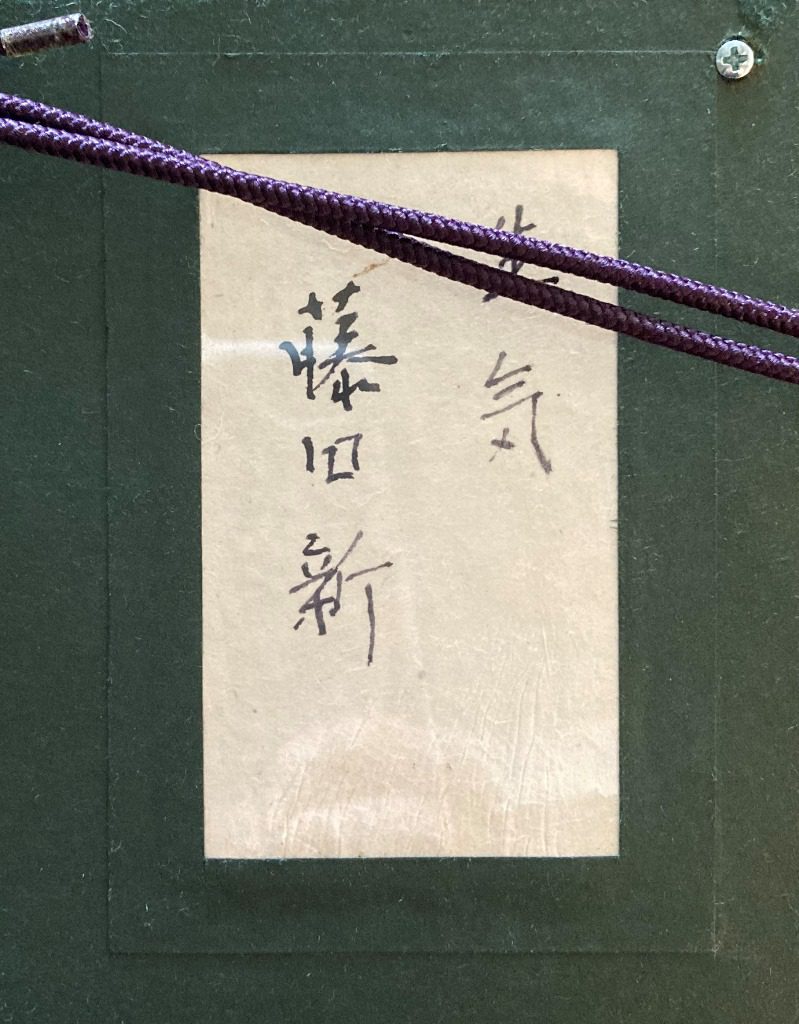 生気
藤田新